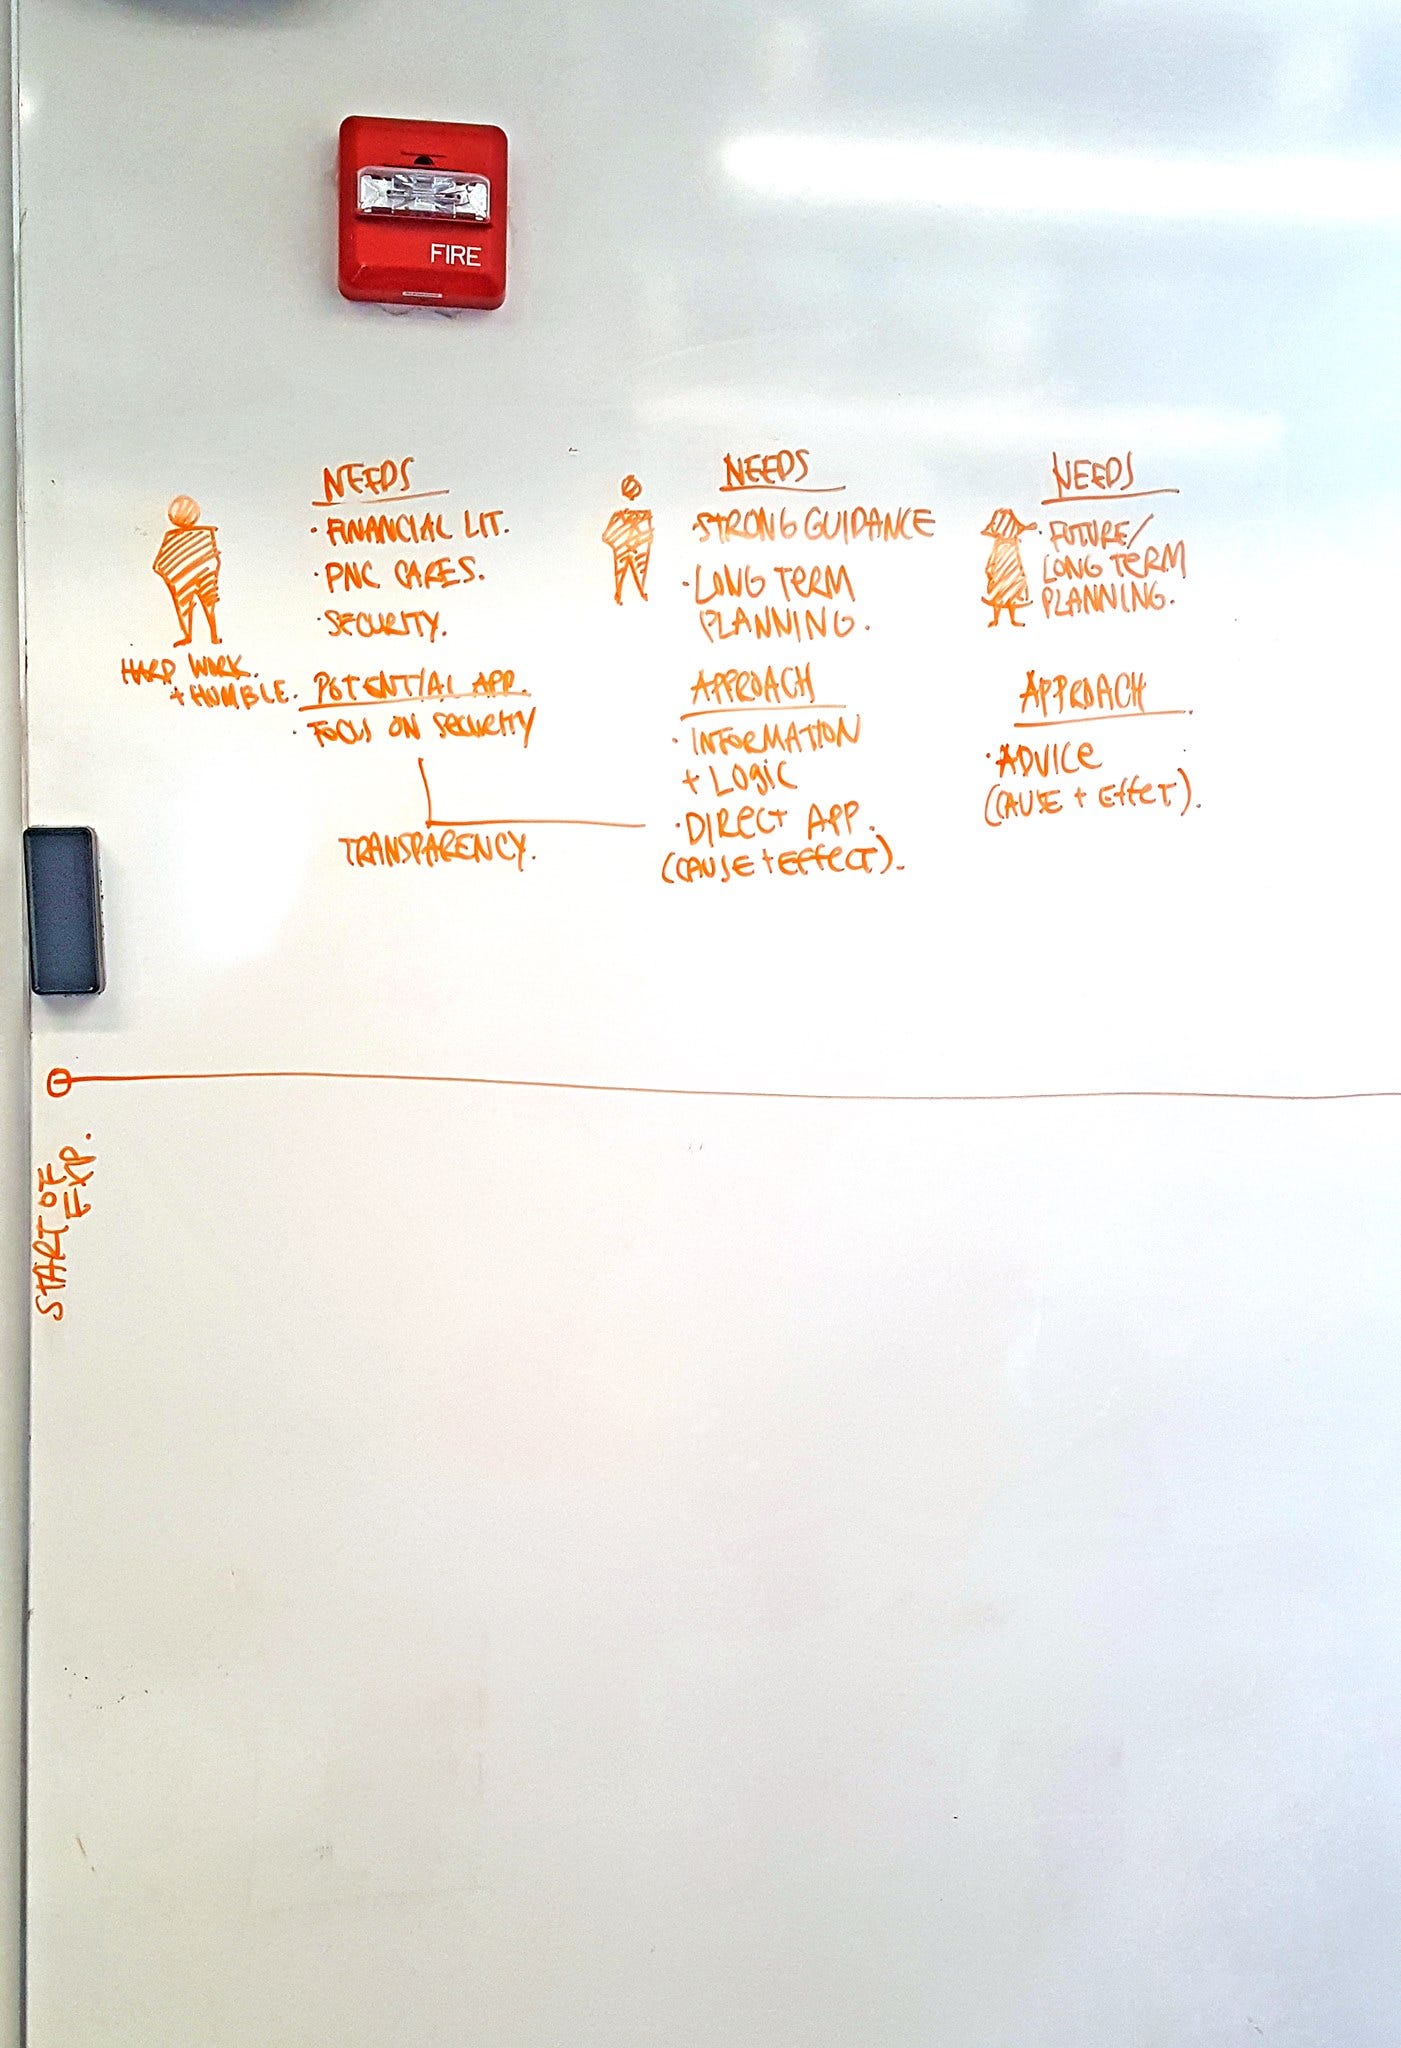 FIRE
NEEDS
· FINANCIAL LIT.
· PNC CARES.
· SECURITY.
HARD WORK.
+ HUMBLE.
POTENTIAL APP.
· FOCUS ON SECURITY
TRANSPARENCY.
NEEDS
· STRONG GUIDANCE
· LONG TERM
PLANNING.
APPROACH
· INFORMATION
+ LOGIC
· DIRECT APP.
(CAUSE + EFFECT).
NEEDS
· FUTURE/
LONG TERM
PLANNING.
APPROACH
· ADVICE
(CAUSE + EFFECT).
START OF
EXP.